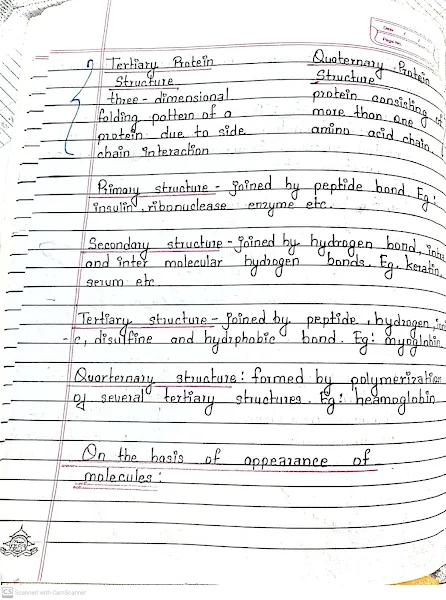 Tertiary Protein
Structure
three-dimensional
folding pattern of a
protein due to side
chain interaction
Quaternary Protein
Structure
protein consisting of
more than one
amino acid chain
Primary structure - joined by peptide bond Eg:
insulin, ribonuclease enzyme etc.
Secondary structure - joined by hydrogen bond, intra
and inter molecular hydrogen bonds. Eg. keratin,
serum etc.
Tertiary structure - joined by peptide, hydrogen, ioni
-c, disulfine and hydrphobic bond. Eg: myoglobin
Quarternary structure: formed by polymerization
of several tertiary structures. Eg: heamoglobin
On the basis of appearance of
molecules:
CS Scanned with CamScanner